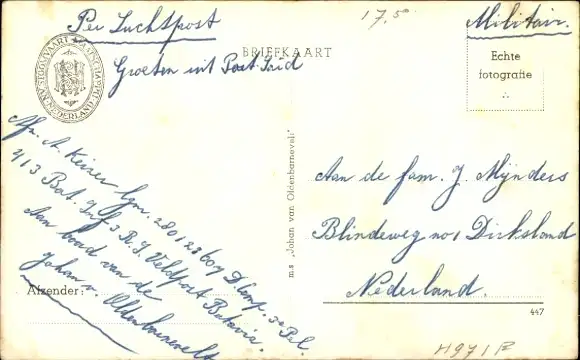 Per Luchtpost
17.5
Militair.
STOOMVAART MAATSCHAPPIJ NEDERLAND
BRIEFKAART
Groeten uit Port-Said
Echte
fotografie
Afz. A. Keizer lgn. 280123607 D Comp. 3e Pel.
413 Bat. Inf. 3 R.I. Veldpost Batavia.
Aan boord van de
Johan v. Oldenbarnevelt
Afzender:
m.s. „Johan van Oldenbarnevelt"
Aan de fam. J. Mijnders
Blindeweg no 1 Dirksland
Nederland.
447